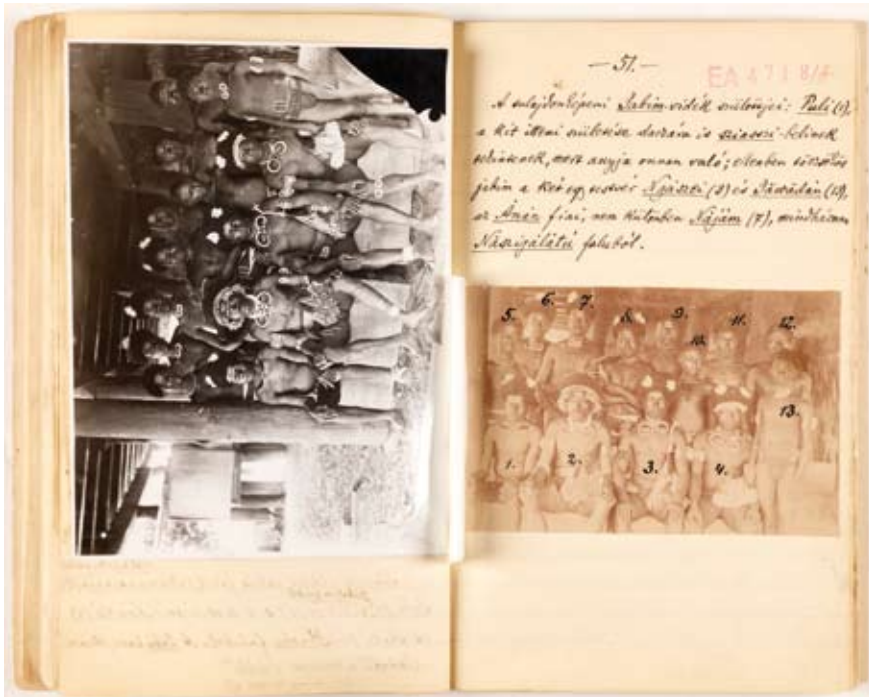 — 51. —
EA 4718/
A tulajdonképeni Jabim-vidék szülöttjei: Puli (1),
a kit itteni születése daczára is sziasszi-belinek
tekintenek, mert anyja onnan való; ellenben
jabim a két egy testvér Ngászei (8) és (13),
az Ánán fiai, nem különben Nájám (7), mindhárom
Nászigálátú faluból.
5. 6. 7. 8. 9. 10. 11. 12.
1. 2. 3. 4. 13.